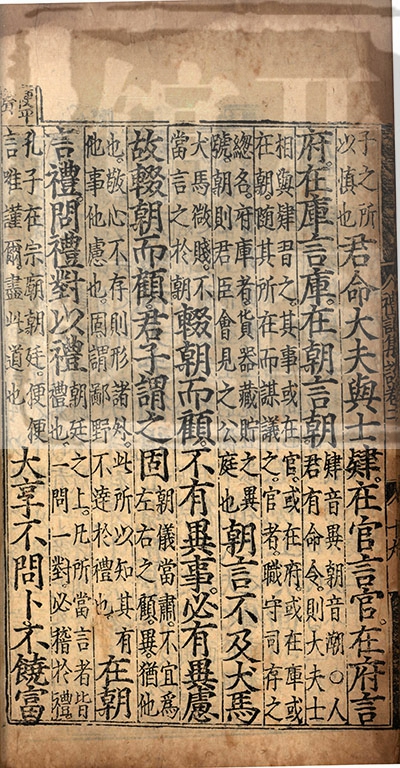 子之所
以慎也
君命大夫與士肄。在官言官。在府言
府。在庫言庫。在朝言朝
肄音異朝音潮○人
君有命令。則大夫士
相與肄習之。其事或在官。或在府。或在庫或
在朝。隨其所在而謀議之。官者。職守司存之
總名。府庫者。貨器藏貯之異
號。朝則君臣會見之公庭也
朝言不及犬馬
犬馬微賤。不
當言之於朝
輟朝而顧。不有異事。必有異慮
故輟朝而顧君子謂之固
朝儀當肅。不宜爲
左右之顧。異猶他
也。敬心不存則形諸外。此所以知其有
他事他慮也。固謂鄙野不達於禮也
在朝
言禮問禮對以禮
朝廷之上。凡所當言者皆
禮也。一問一對必稽於禮
孔子在宗廟朝廷。便便
言唯謹爾。盡此道也
大享不問卜。不饒富
禮記集說卷二
十九